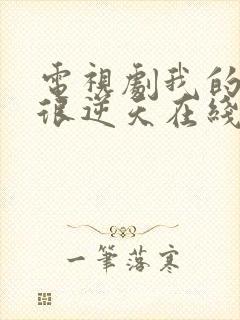 電視劇我的
很逆天在綫
一筆落寒